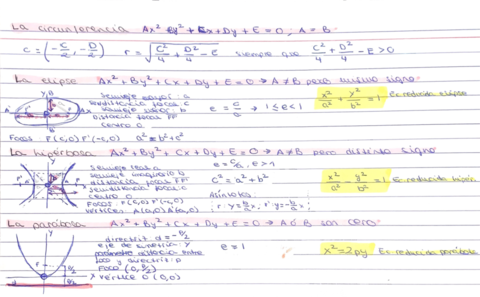 La circunferencia Ax² + By² + Cx + Dy + E = 0, A = B
C = (-C/2, -D/2) r = √(C²/4 + D²/4 - E) siempre que C²/4 + D²/4 - E > 0
La elipse Ax² + By² + Cx + Dy + E = 0 → A ≠ B pero mismo signo
semieje mayor: a
semidistancia focal: c
semieje menor: b
distancia focal FF'
centro O
e = c/a → 1 ≤ e < 1
x²/a² + y²/b² = 1 Ec. reducida elipse
Focos F(c,0) F'(-c,0) a² = b² + c²
La hipérbola Ax² + By² + Cx + Dy + E = 0 → A ≠ B pero distinto signo
semieje real: a
semieje imaginario: b
distancia focal FF'
semidistancia focal: c
centro O
Focos F(c,0) F'(-c,0)
Vértices: A(a,0) A'(-a,0)
e = c/a, e > 1
c² = a² + b²
Asíntotas:
r: y = b/a x; r': y = -b/a x;
x²/a² - y²/b² = 1 Ec. reducida
La parábola Ax² + By² + Cx + Dy + E = 0 → A ó B son cero
directriz d = -P/2
eje de simetría Y
parámetro distancia entre
foco y directriz: p
Foco (0, P/2)
vértice O (0,0)
e = 1
x² = 2py Ec. reducida parábola